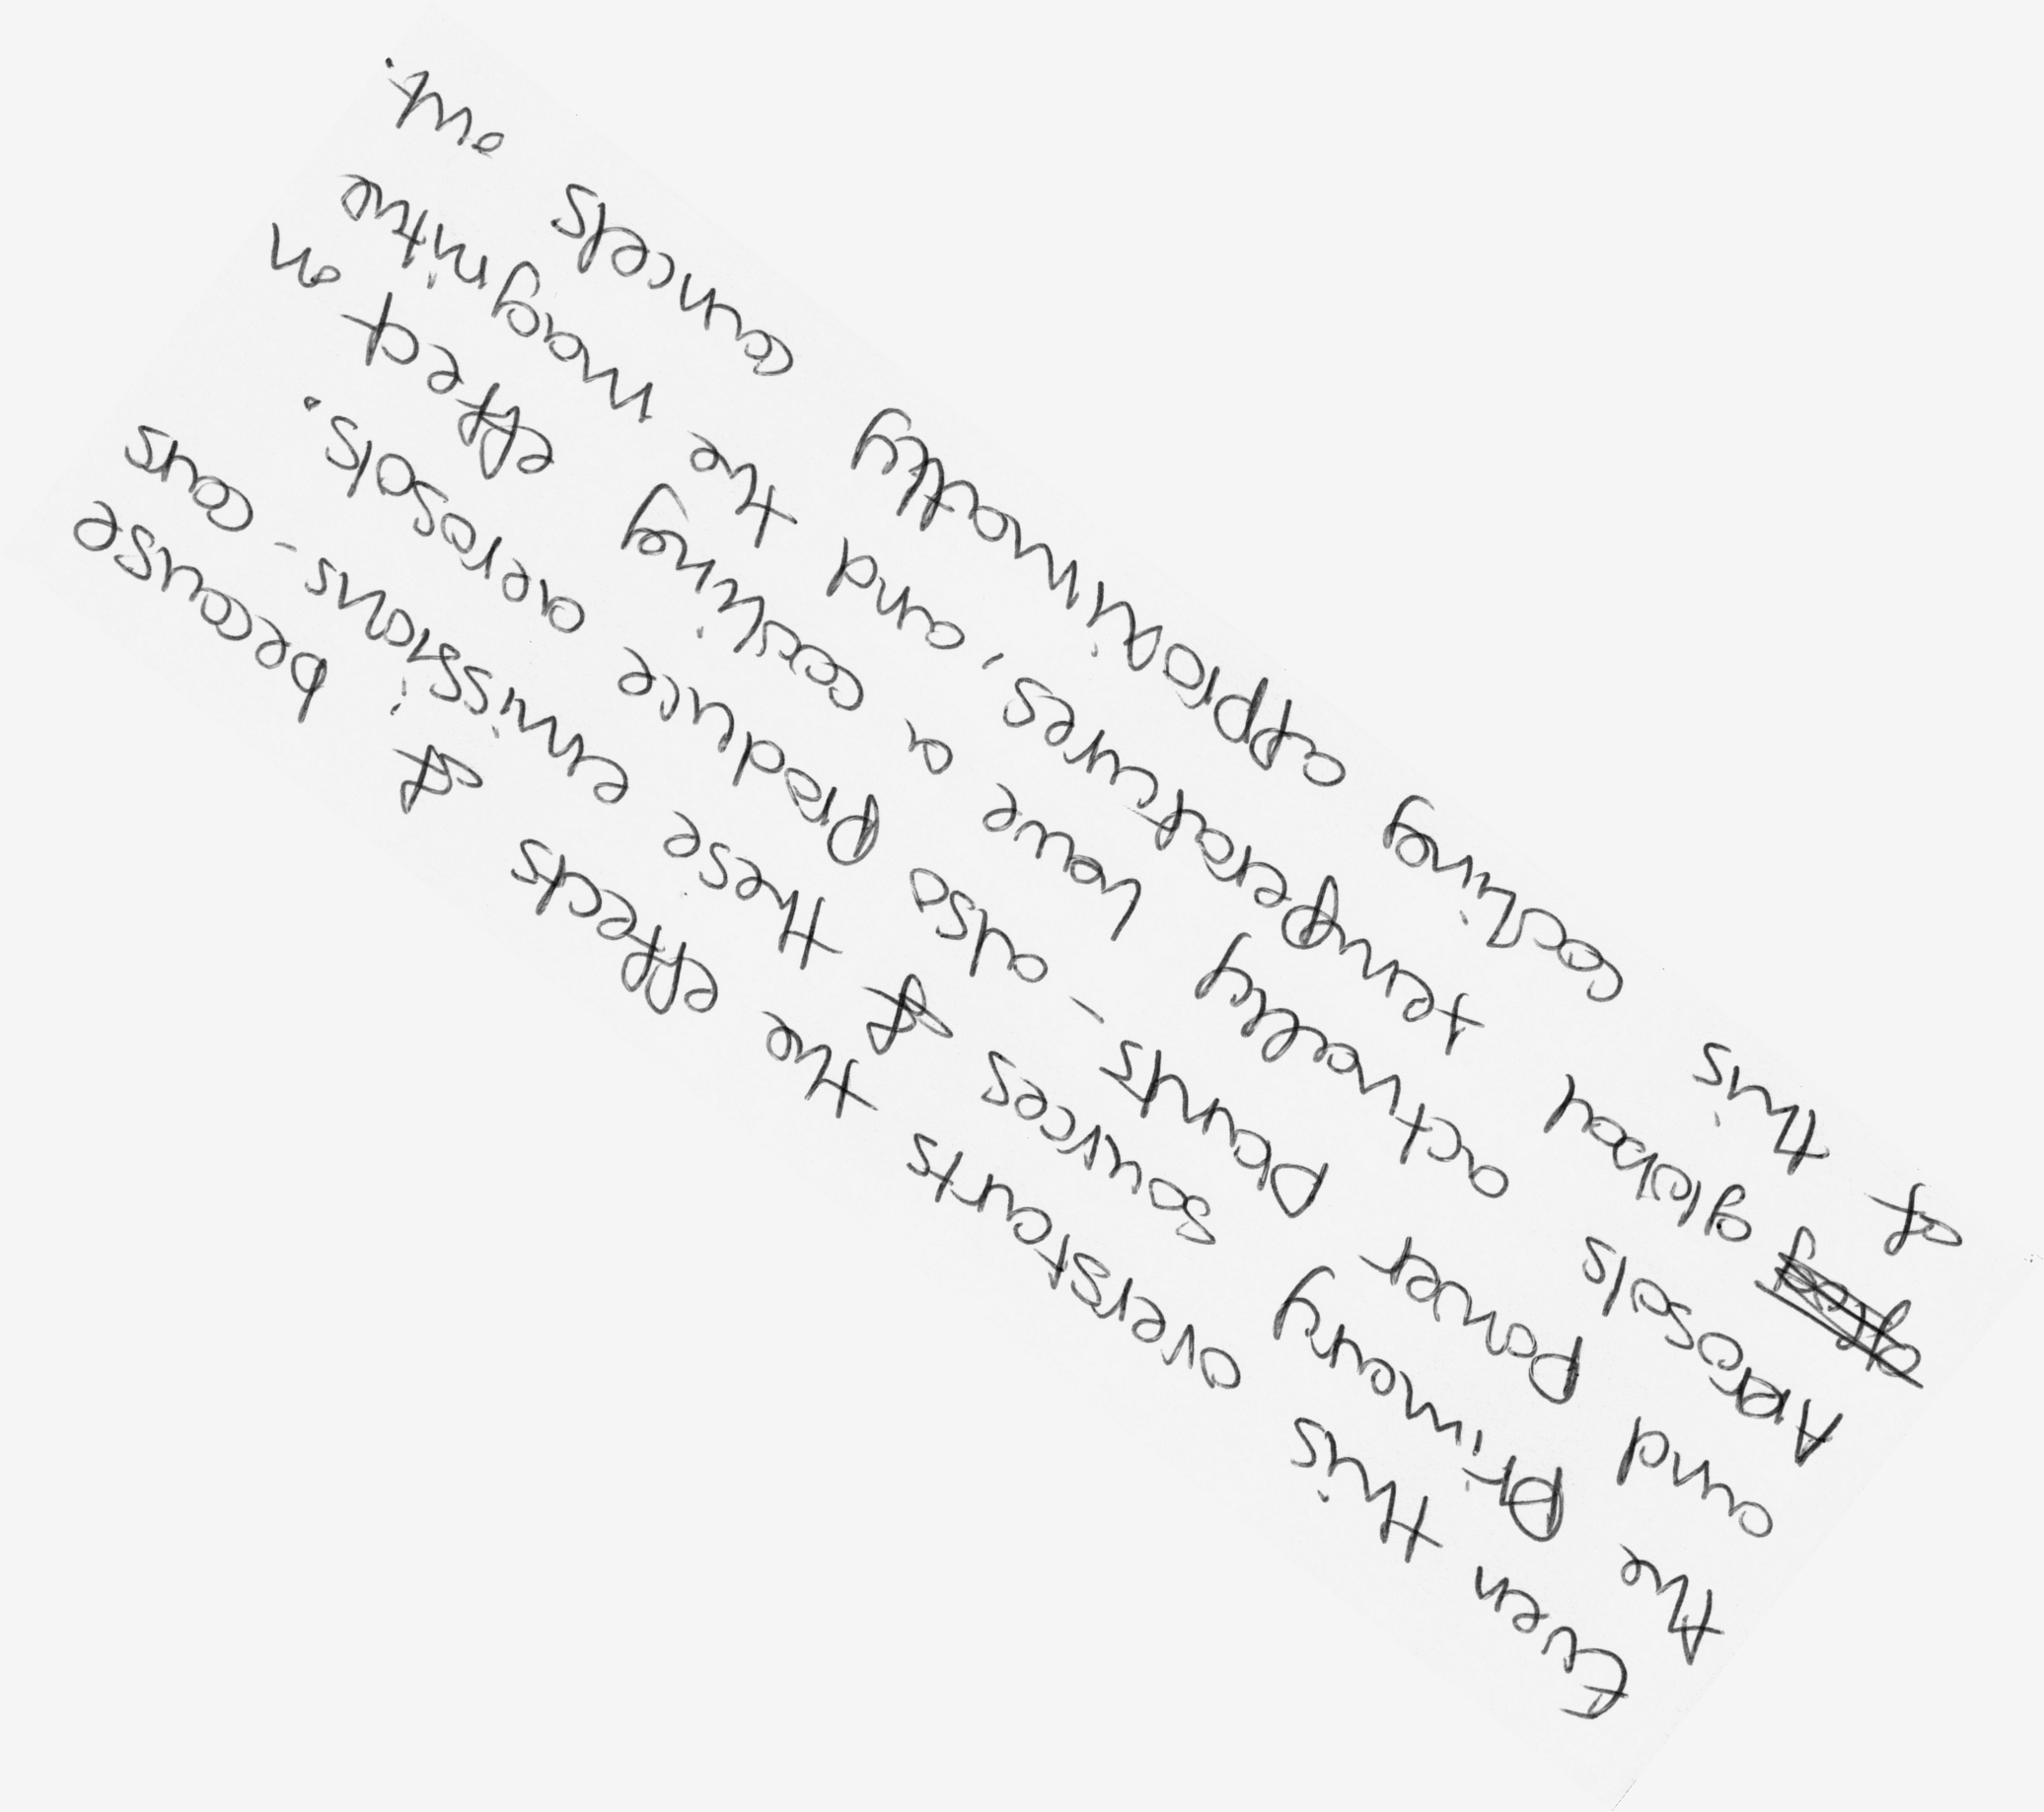 Even this overstarts the effects of because
the primary sources of these emissions - cars
and power plants - also produce aerosols.
Aerosols actually have a cooling effect on
global temperatures, and the magnitue
of this cooling approximatly cancels out.